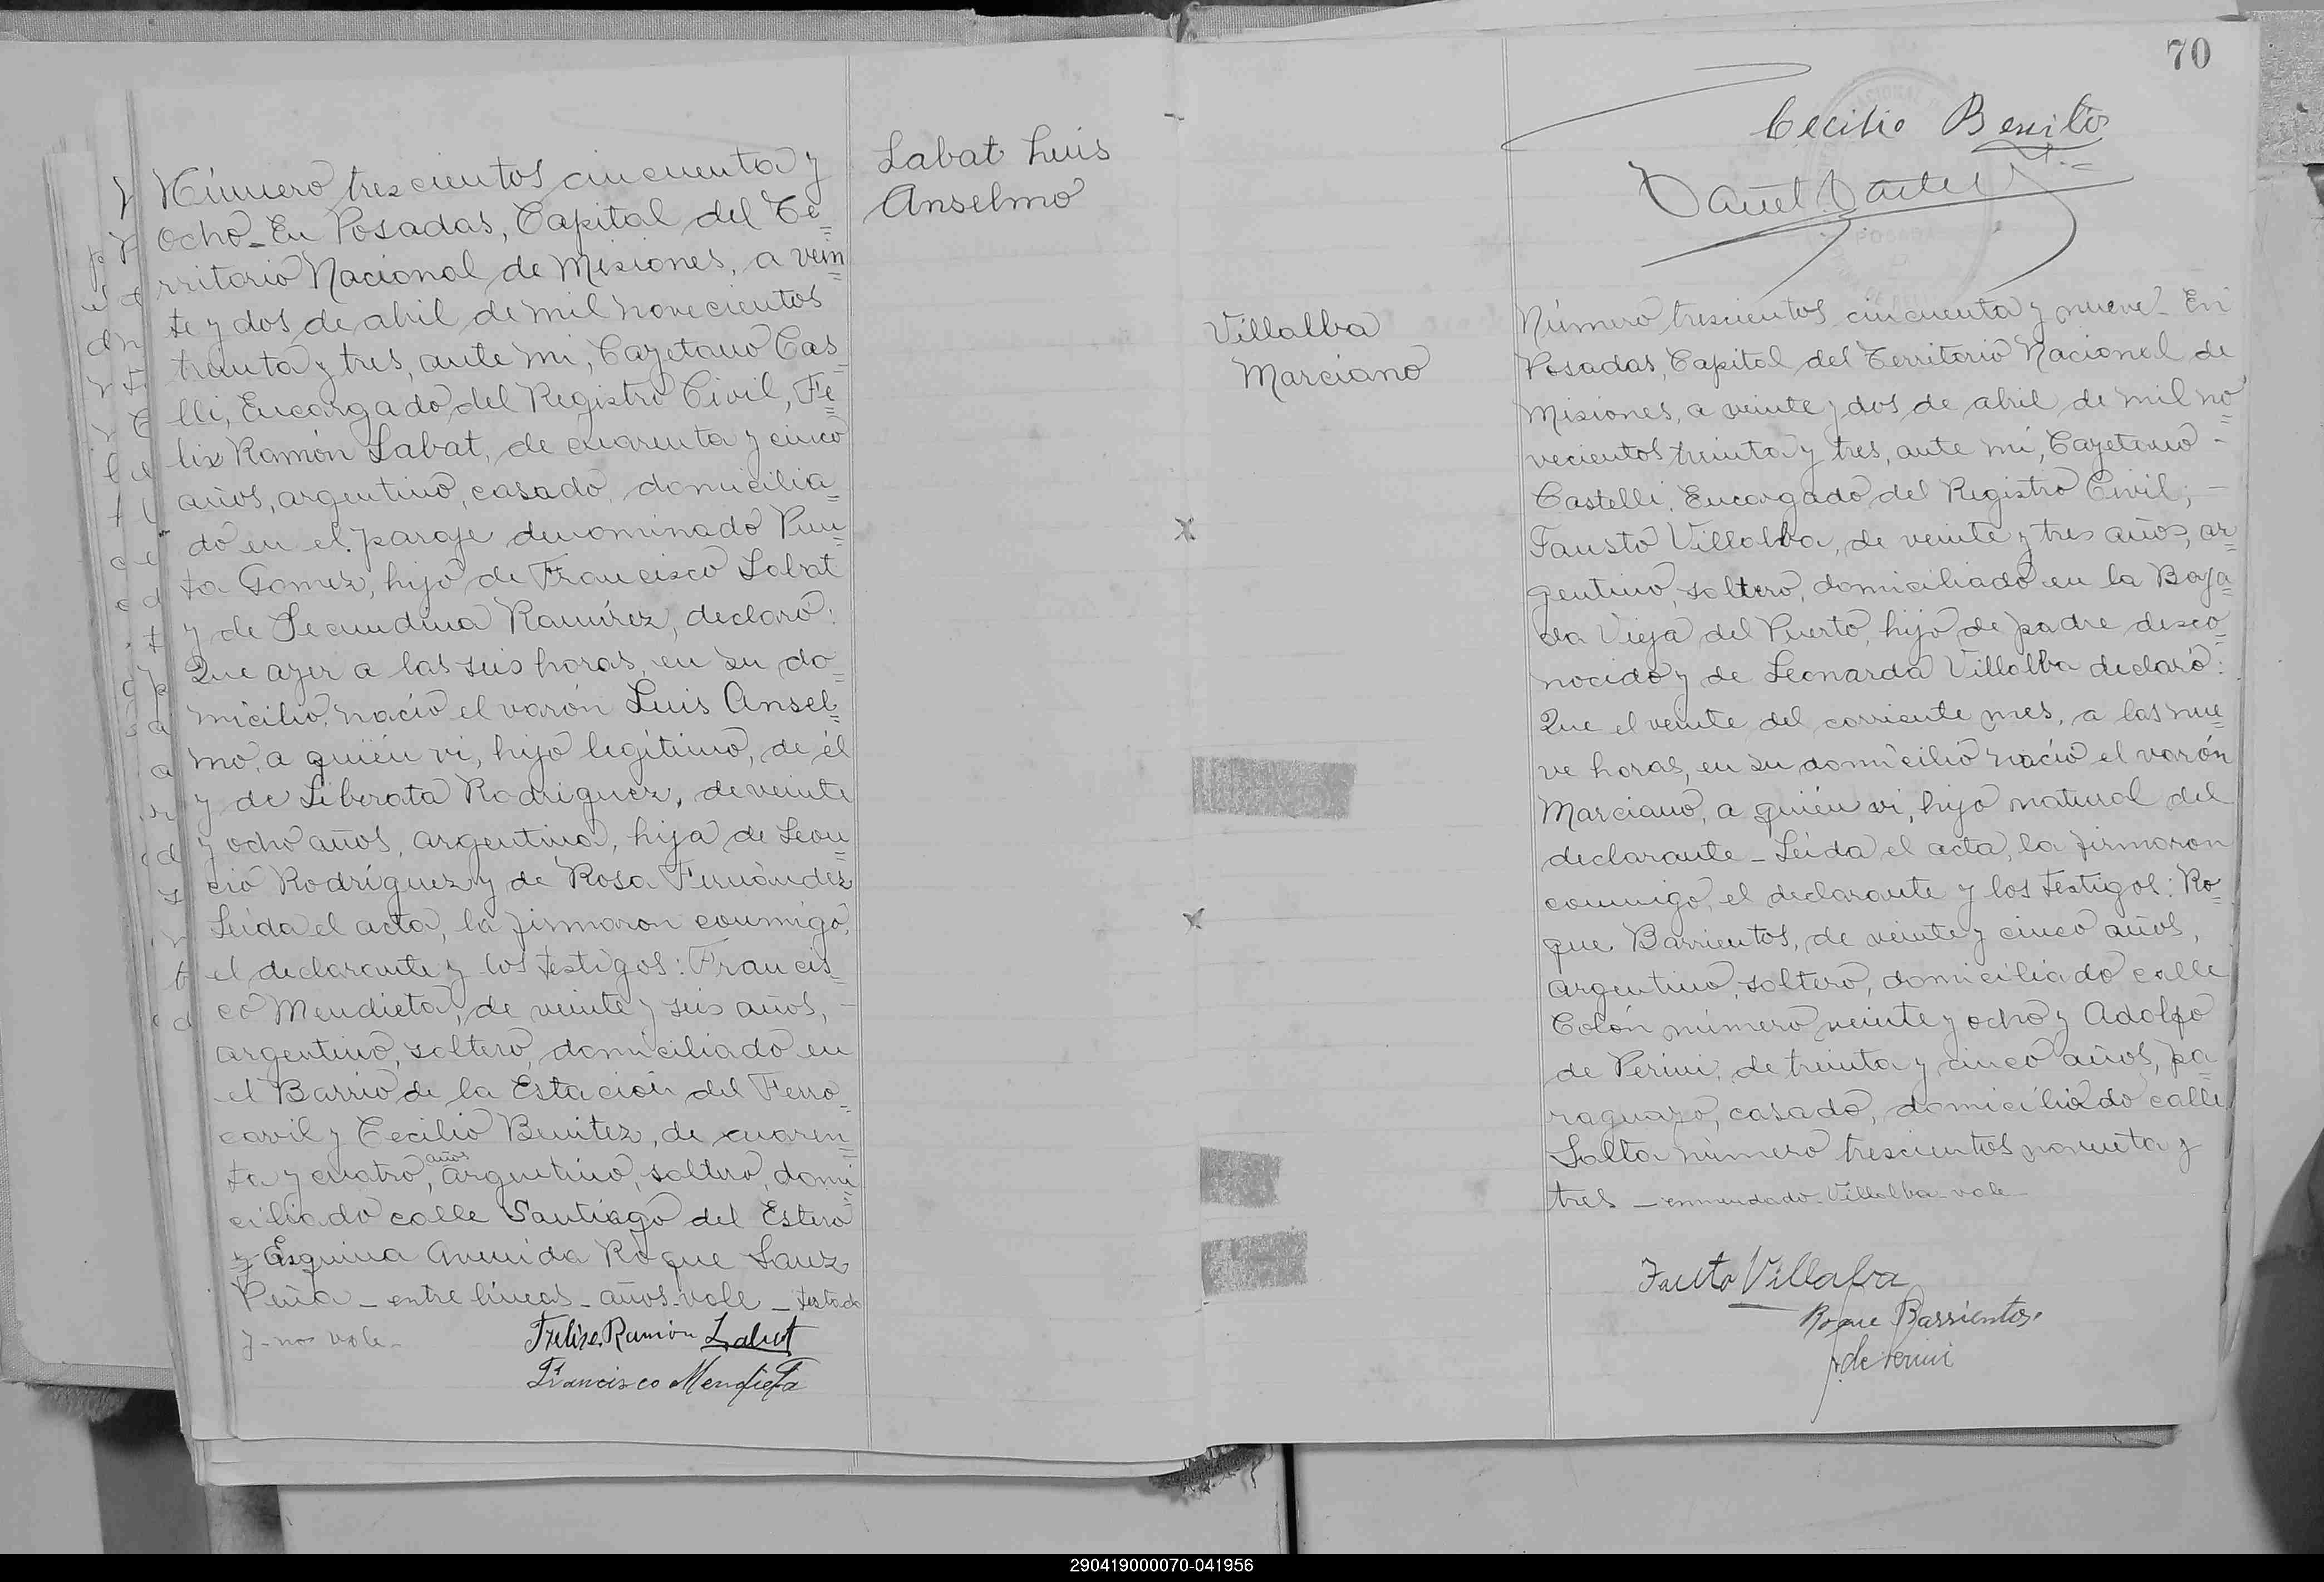 Número trescientos cincuenta y
ocho_ En Posadas, Capital del Te=
rritorio Nacional de Misiones, a vein=
te y dos de abril de mil novecientos
treinta y tres, ante mi, Cayetano Cas=
lli, Encargado del Registro Civil, Fe=
lix Ramón Labat, de cuarenta y cinco
años, argentino, casado, domicilia=
do en el paraje denominado Pun=
ta Gomez, hijo de Francisco Labat
y de Secundina Ramírez, declaró:
Que ayer a las seis horas, en su do=
micilio, nació el varón Luis Ansel=
mo, a quién vi, hijo legítimo, de él
y de Liberata Rodriguez, de veinte
y ocho años, argentina, hija de Leon=
cio Rodríguez y de Rosa Fernández
Leida el acta, la firmaron conmigo,
el declarante y los testigos: Francis=
co Mendieta, de veinte y seis años, -
argentino, soltero, domiciliado en
el Barrio de la Estación del Ferro=
carril y Cecilio Benitez, de cuaren=
ta y cuatro, años argentino, soltero, domi=
ciliado calle Santiago del Estero
y Esquina Avenida Roque Sanz
Peña _ entre líneas _ años _ vale _ testado
y - no vale -
Felix Ramón Labat
Francisco Mendieta
Labat Luis
Anselmo
70
Cecilio Benitez
Villalba
Marciano
Número trescientos cincuenta y nueve _ En
Posadas, Capital del Territorio Nacional de
Misiones, a veinte y dos de abril de mil no=
vecientos treinta y tres, ante mi, Cayetano -
Castelli, Encargado del Registro Civil, -
Fausto Villalba, de veinte y tres años, ar=
gentino, soltero, domiciliado en la Baja=
da Vieja del Puerto, hijo de padre desco=
nocido y de Leonarda Villalba declaró:
Que el veinte del corriente mes, a las nue=
ve horas, en su domicilio nació el varón
Marciano, a quién vi, hijo natural del
declarante _ Leida el acta, la firmaron
conmigo, el declarante y los testigos: Ro=
que Barrientos, de veinte y cinco años,
argentino, soltero, domiciliado calle
Colón número veinte y ocho y Adolfo
de Perini, de treinta y cinco años, pa=
raguayo, casado, domiciliado calle
Salta número trescientos noventa y
tres _ enmendado _ Villalba _ vale _
Fausto Villalba
Roque Barrientos
A. de Perini
290419000070-041956